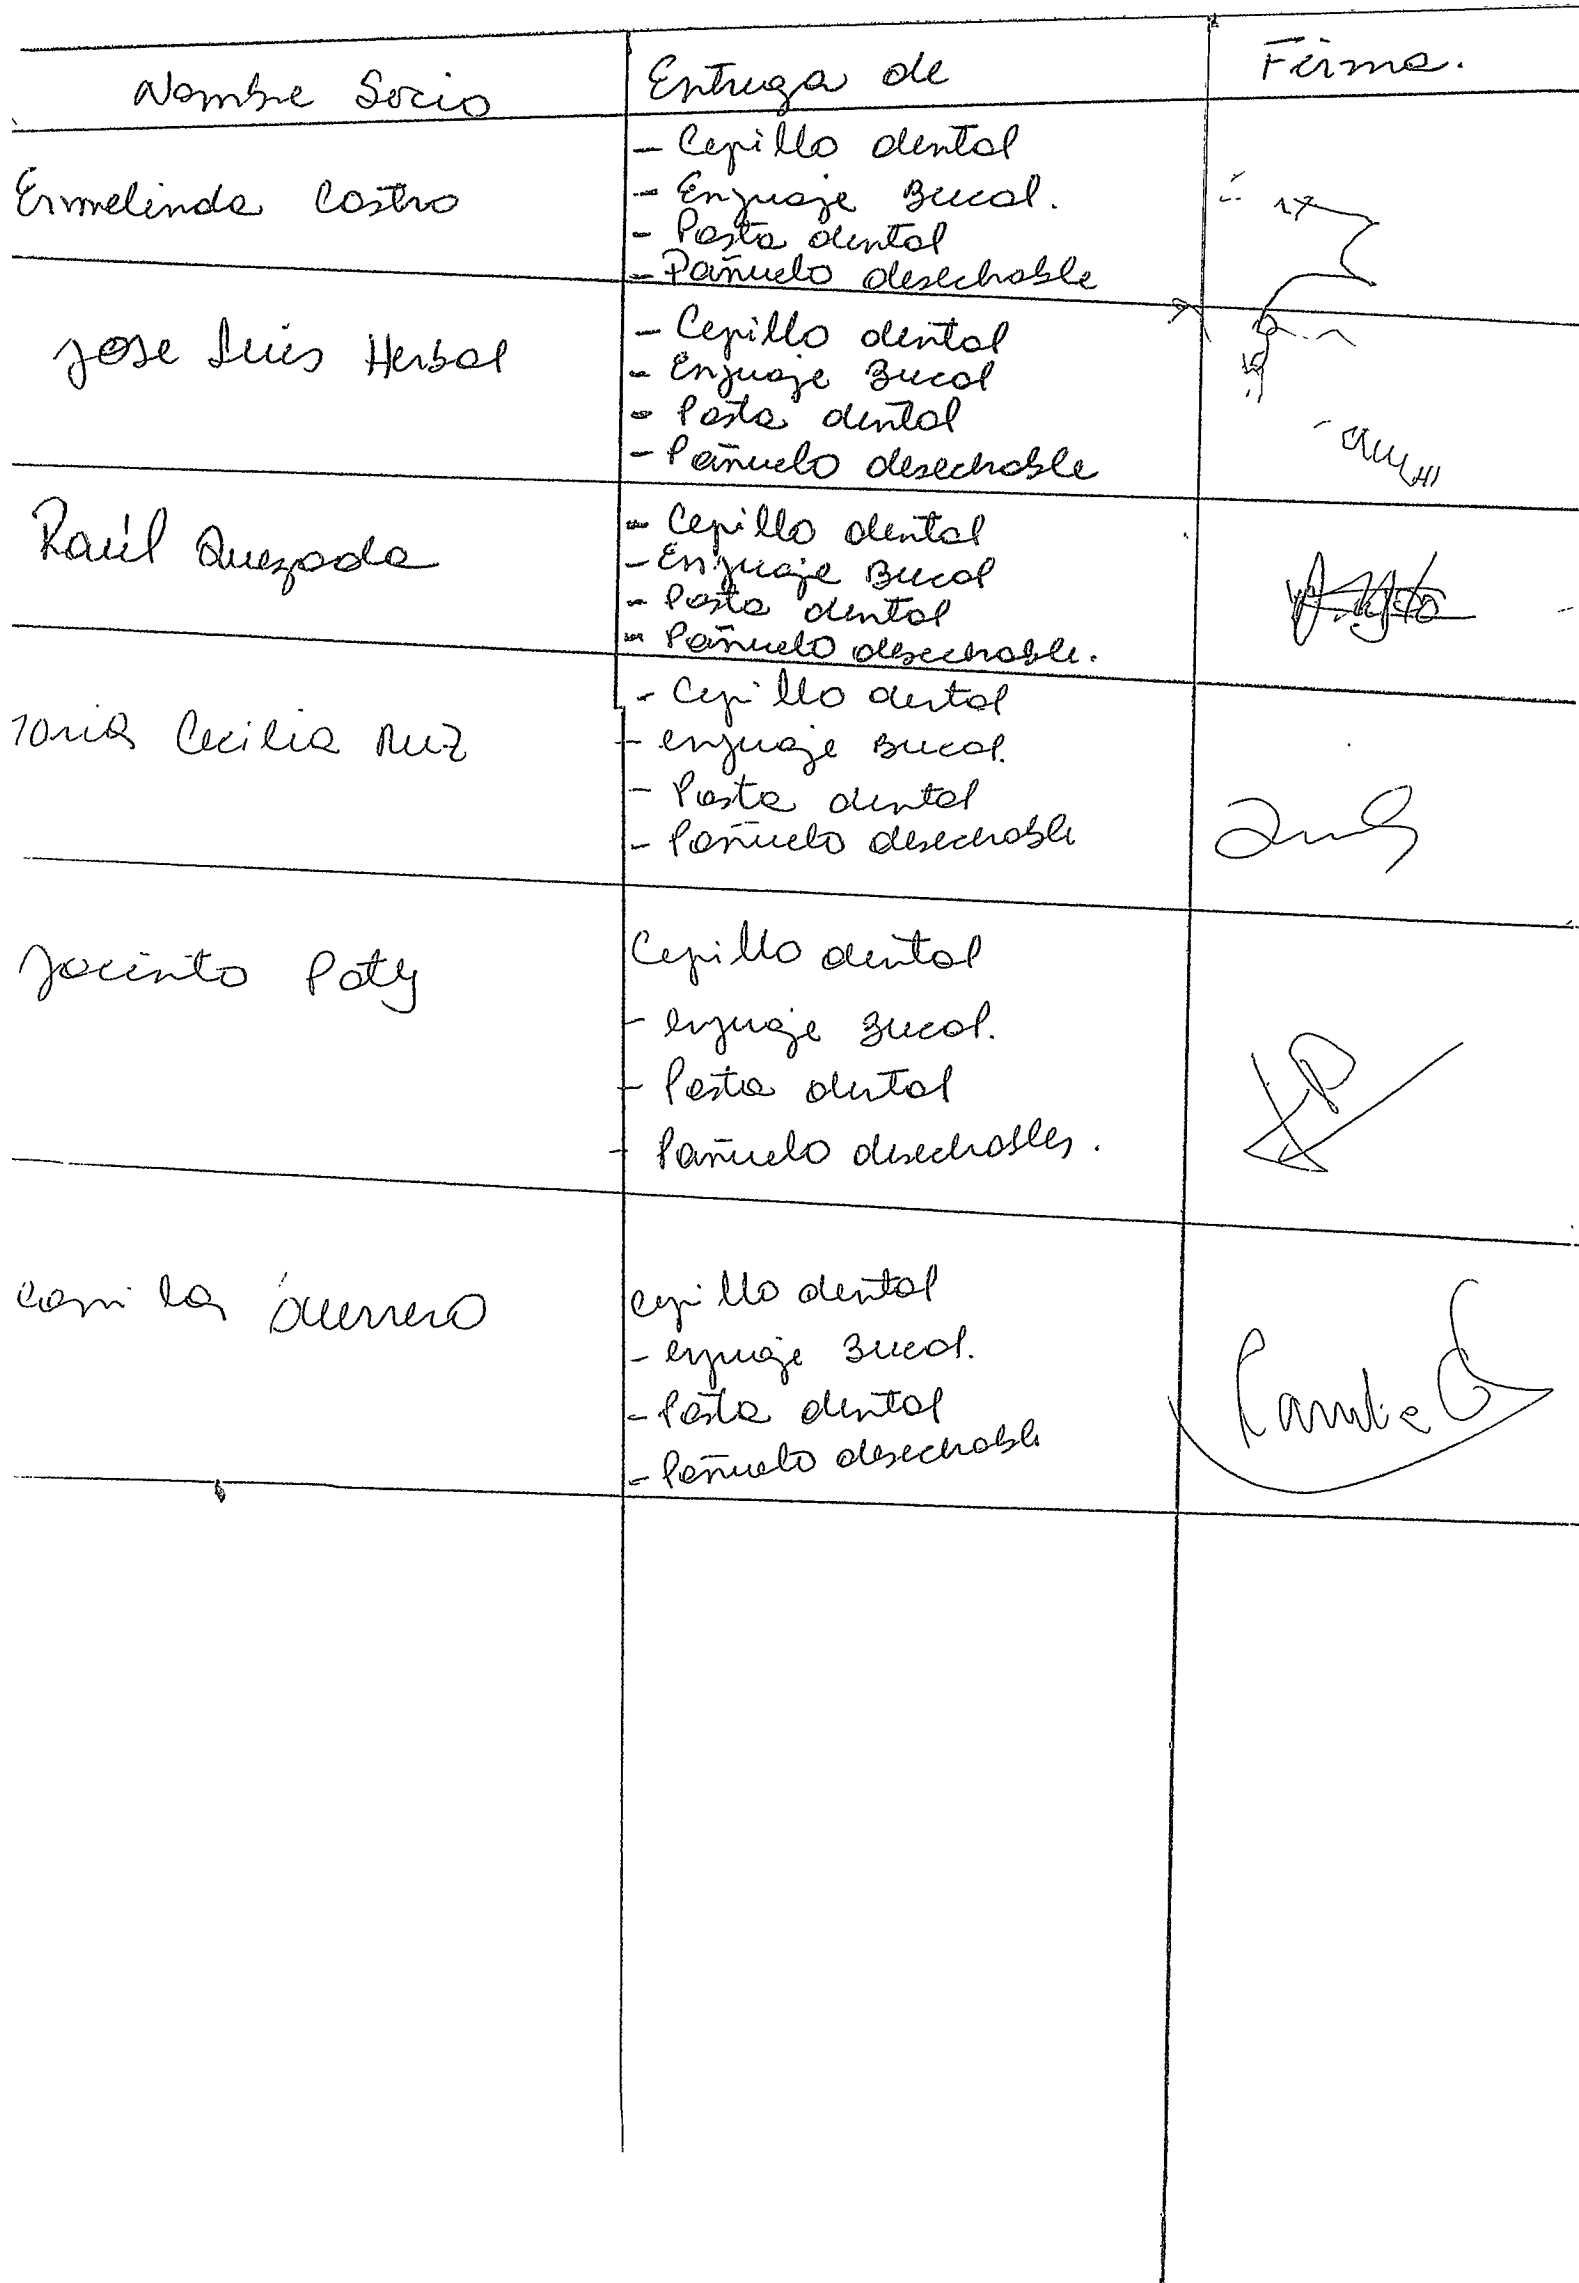 Nombre Socio
Entrega de
Firma.
Ermelinda Castro
- Cepillo dental
- Enjuaje Bucal.
- Pasta dental
- Pañuelo desechable
Jose Luis Herbal
- Cepillo dental
- Enjuaje Bucal
- Pasta dental
- Pañuelo desechable
Raúl Quezada
- Cepillo dental
- Enjuaje Bucal
- Pasta dental
- Pañuelo desechable.
Cecilia Ruz
- Cepillo dental
- enjuaje Bucal.
- Pasta dental
- Pañuelo desechable
Jacinto Paty
Cepillo dental
- enjuaje Bucal.
- Pasta dental
- Pañuelo desechables.
Camila Guerrero
cepillo dental
- enjuaje Bucal.
- Pasta dental
- Pañuelo desechable
Camila G